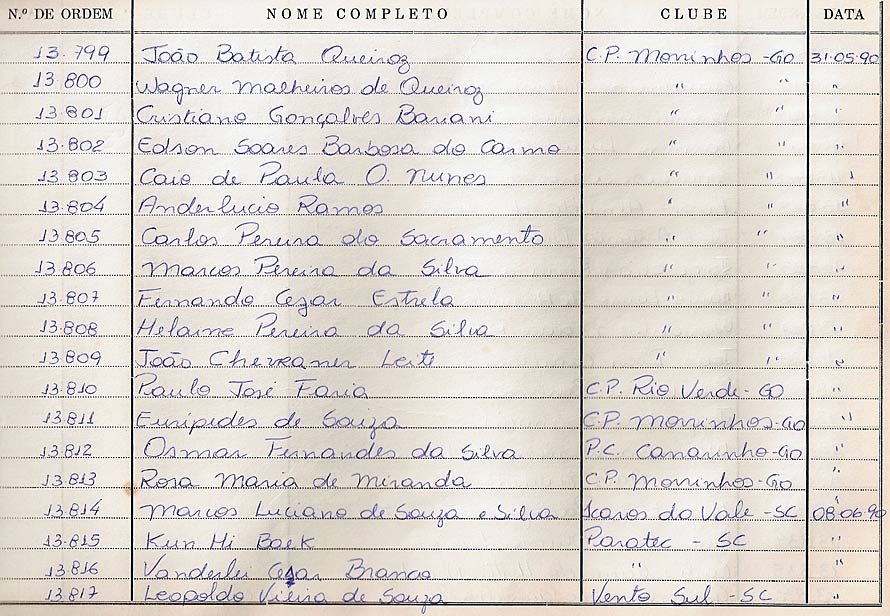 N.º DE ORDEM NOME COMPLETO CLUBE DATA
13.799 João Batista Queiroz C.P. Morrinhos -GO 31.05.90
13.800 Wagner Malheiros de Queiroz " " "
13.801 Cristiano Gonçalves Bariani " " "
13.802 Edson Soares Barbosa do Carmo " " "
13.803 Caio de Paula O. Nunes " " "
13.804 Anderlucio Ramos " " "
13.805 Carlos Pereira do Sacramento " " "
13.806 Marcos Pereira da Silva " " "
13.807 Fernando Cezar Estrela " " "
13.808 Helaine Pereira da Silva " " "
13.809 João Leite " " "
13.810 Paulo José Faria C.P. Rio Verde - GO "
13.811 Eurípides de Souza C.P. Morrinhos-GO "
13.812 Osmar Fernandes da Silva P.C. Canarinho-GO "
13.813 Rosa Maria de Miranda C.P. Morrinhos-GO "
13.814 Marcos Luciano de Souza e Silva Icaros do Vale - SC 08.06.90
13.815 Kun Hi Baek Paratec - SC "
13.816 Vanderlei Cesar Branco " "
13.817 Leopoldo Vieira de Souza Vento Sul - SC "